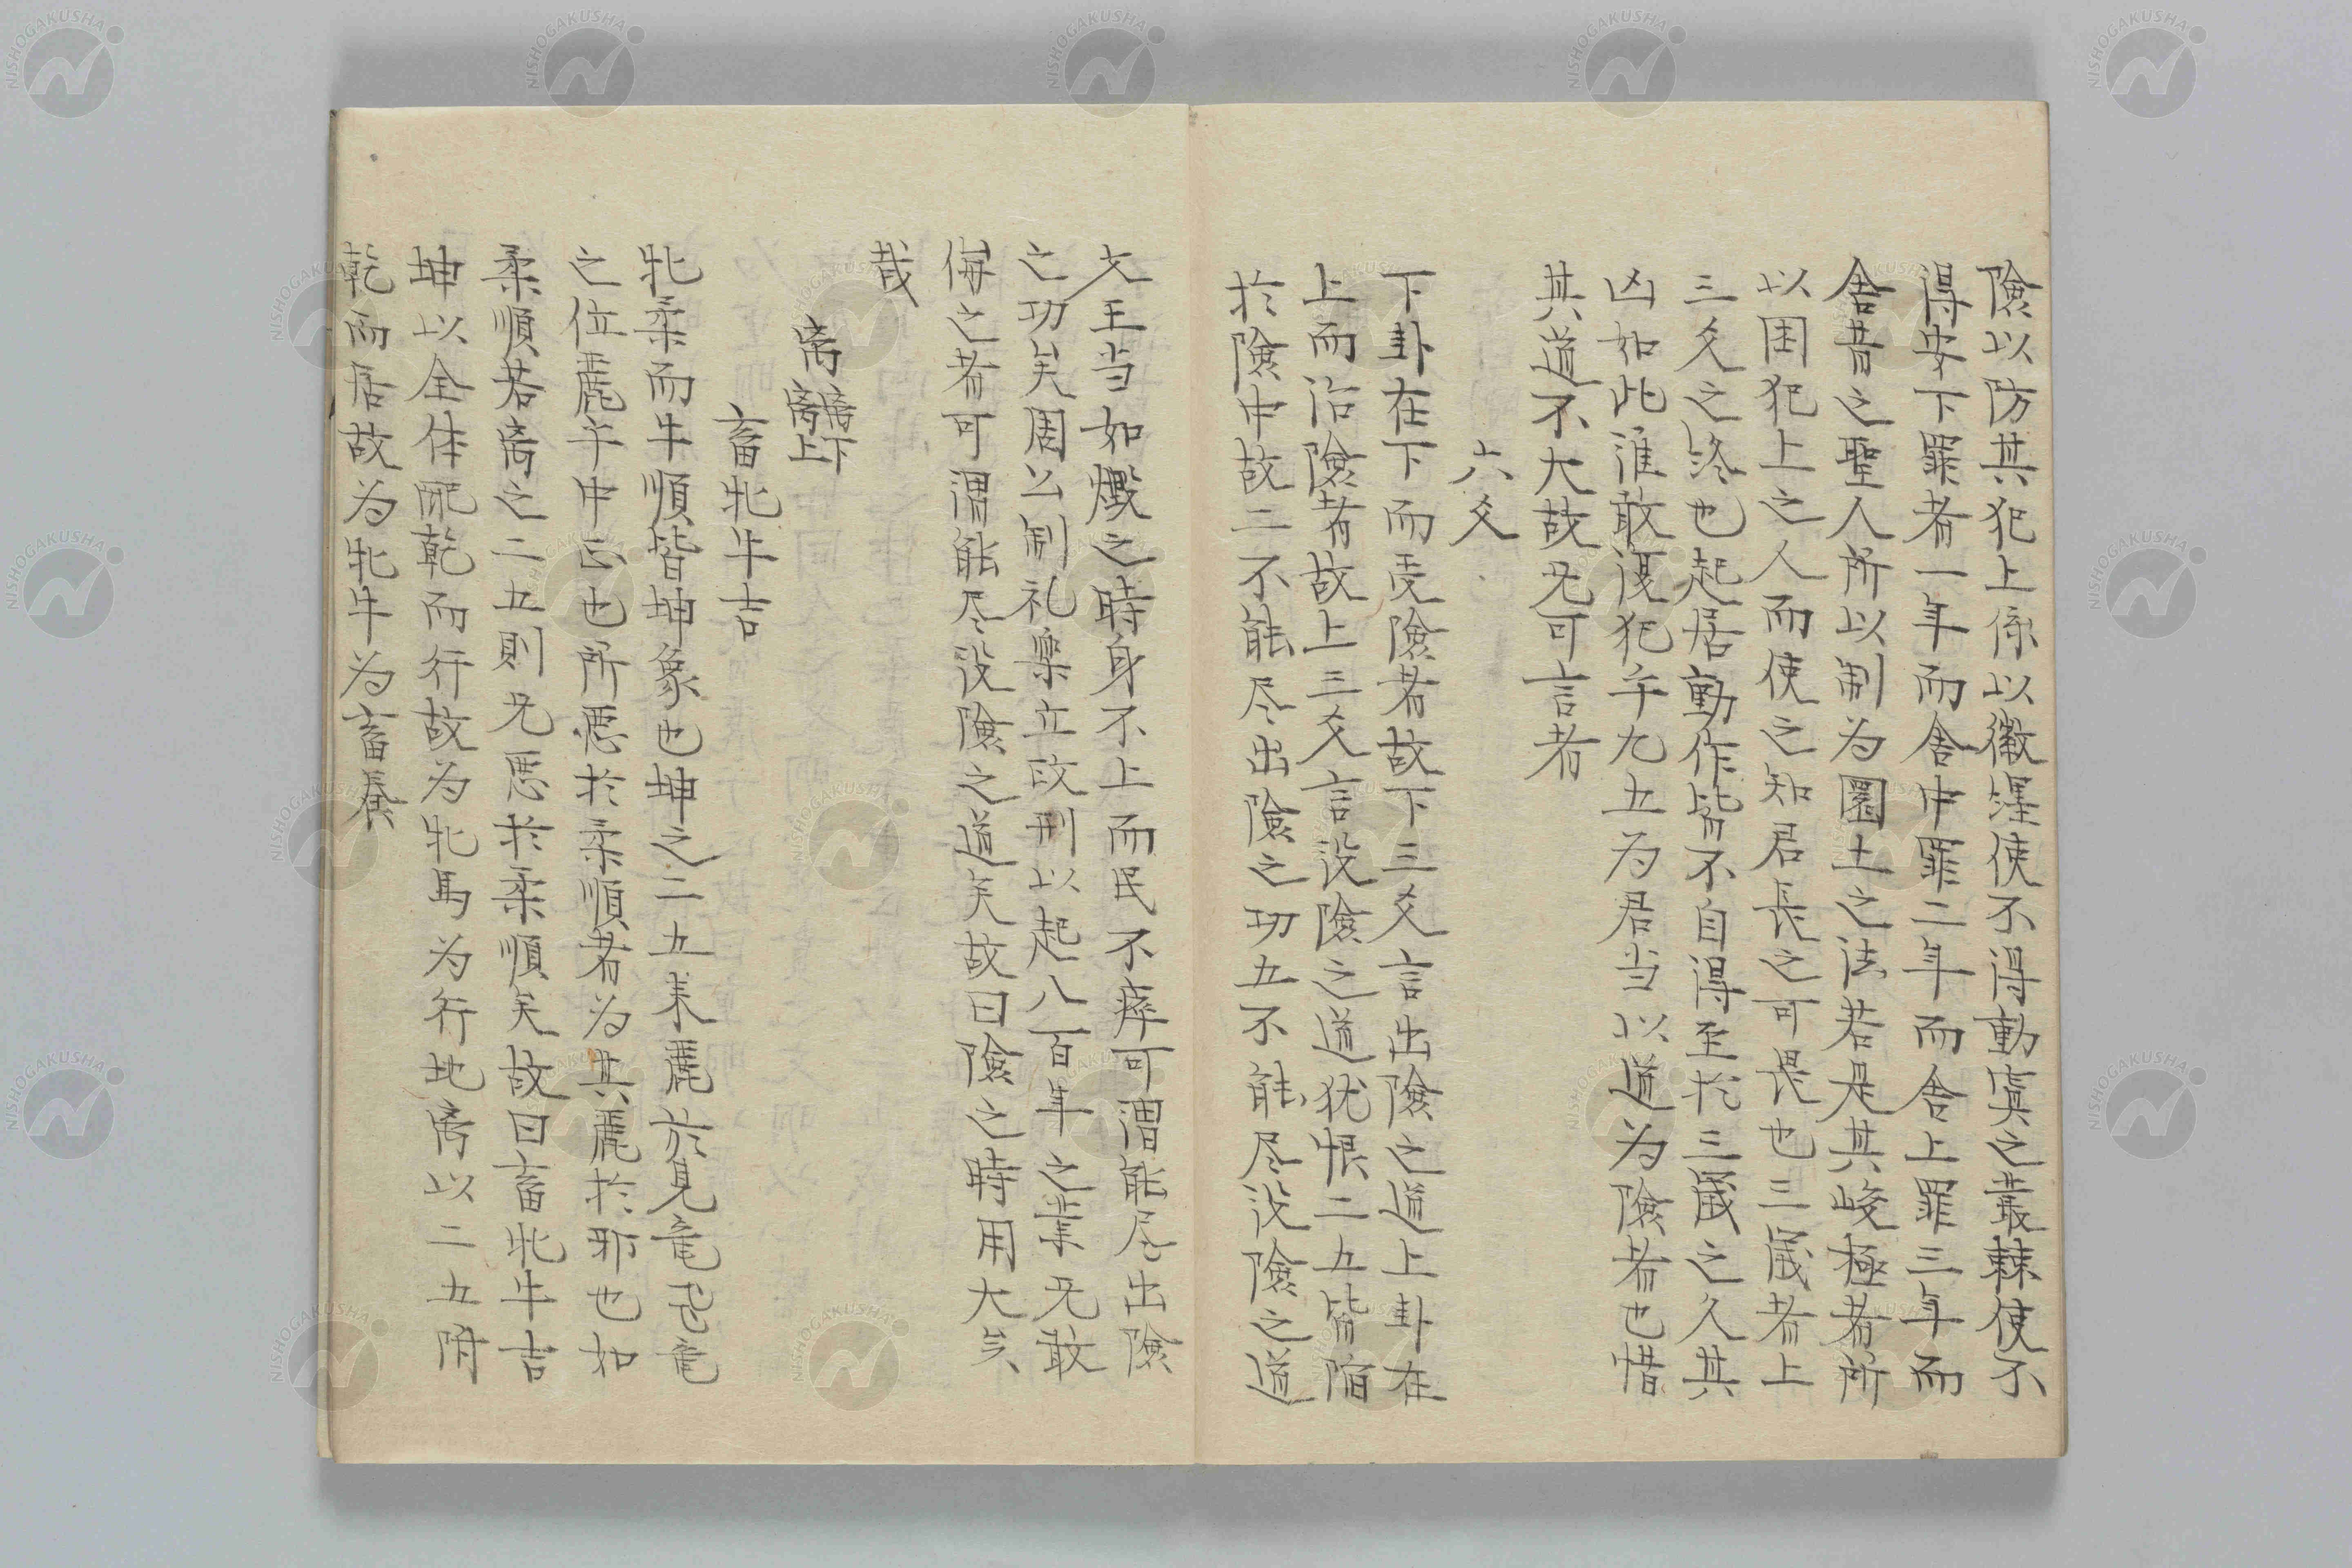 險以防其犯上係以徽纆使不得動寘之叢棘使不
得安下罪者一年而舍中罪二年而舍上罪三年而
舍昔之聖人所以制为圜土之法若是其峻極者所
以困犯上之人而使之知君長之可畏也三歲者上
三爻之終也起居動作皆不自得至扵三歲之久其
凶如此誰敢復犯乎九五为君当以道为險者也惜
其道不大故无可言者
六爻
下卦在下而受險者故下三爻言出險之道上卦在
上而治險者故上三爻言設險之道犹恨二五皆陷
扵險中故二不能尽出險之功五不能尽設險之道
文王当如燬之時身不上而民不瘁可謂能尽出險
之功矣周公制礼樂立政刑以起八百年之業无敢
侮之者可謂能尽設險之道矣故曰險之時用大矣
哉
离 離下離上
畜牝牛吉
牝柔而牛順皆坤象也坤之二五来麗於見竜飛竜
之位麗乎中正也所悪扵柔順者为其麗扵邪也如
柔順若离之二五則无悪扵柔順矣故曰畜牝牛吉
坤以全体配乾而行故为牝馬为行地离以二五附
乾而居故为牝牛为畜養
NISHOGAKUSHA